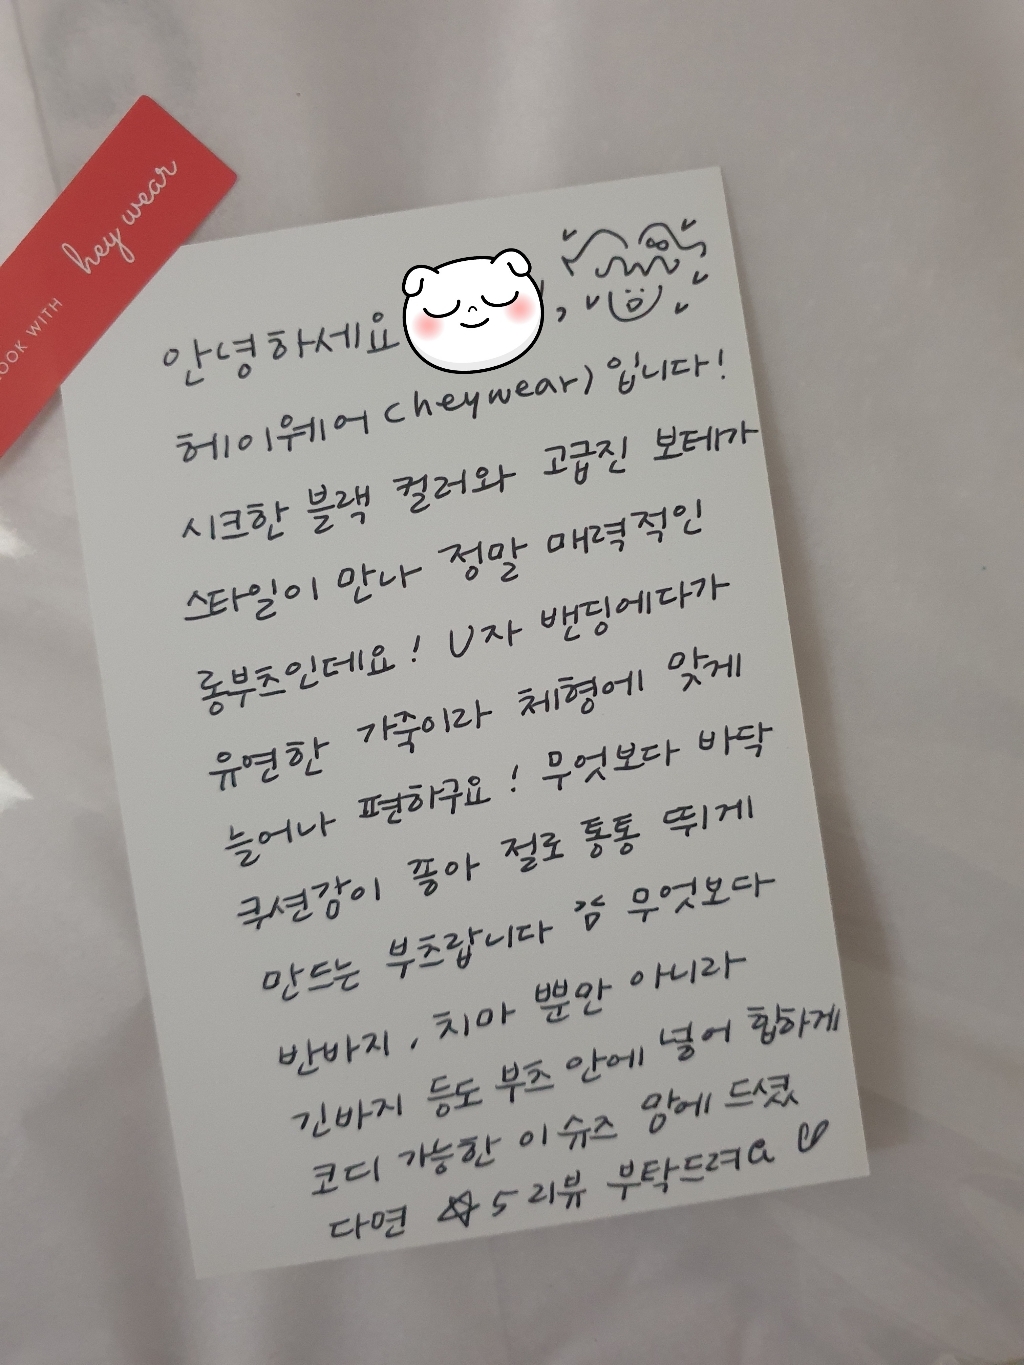 LOOK WITH
hey wear
안녕하세요 ,
헤이웨어 (heywear) 입니다!
시크한 블랙 컬러와 고급진 보테가
스타일이 만나 정말 매력적인
롱부츠인데요! U자 밴딩에다가
유연한 가죽이라 체형에 맞게
늘어나 편하구요! 무엇보다 바닥
쿠션감이 좋아 절로 통통 뛰게
만드는 부츠랍니다 무엇보다
반바지, 치마 뿐만 아니라
긴바지 등도 부츠 안에 넣어 힙하게
코디 가능한 이 슈즈 맘에 드셨
다면 ☆5 리뷰 부탁드려요 ♡